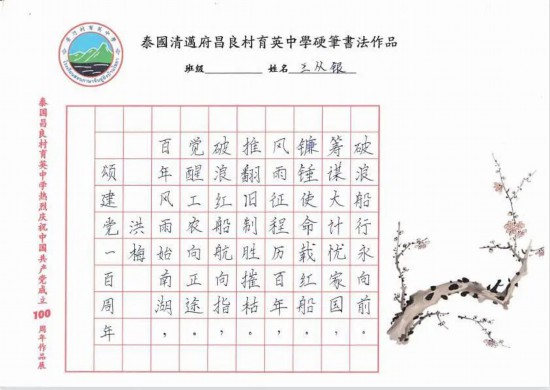 泰國清邁府昌良村育英中學硬筆書法作品
班级 姓名 王从银
泰国昌良村育英中学热烈庆祝中国共产党成立100周年作品展
颂建党一百周年
洪梅
百年风雨始南湖，
觉醒工农向正途，
破浪红船航向指，
推翻旧制胜摧枯，
风雨征程历百年，
镰锤使命载红船，
筹谋大计忧家国，
破浪船行永向前，